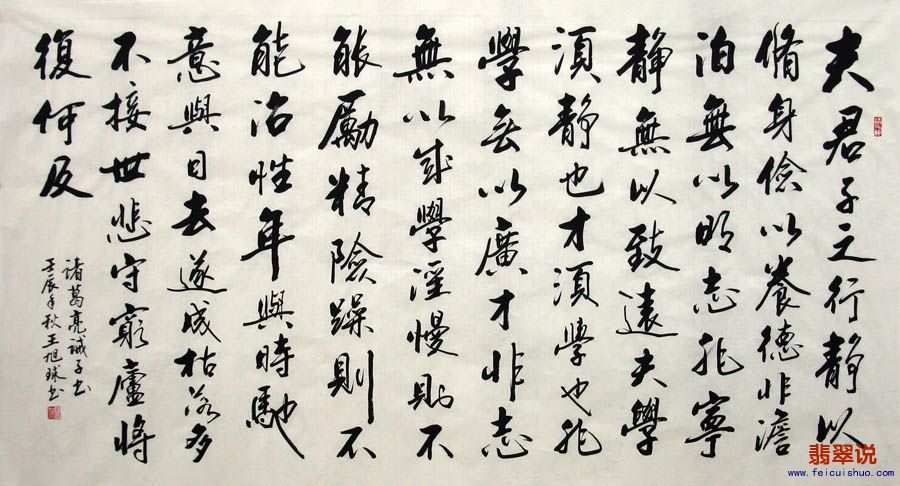 夫君子之行静以
脩身儉以養德非澹
泊無以明志非寧
静無以致遠夫學
須静也才須學也非
學無以廣才非志
無以成學淫慢則不
能勵精險躁則不
能治性年與時馳
意與日去遂成枯落多
不接世悲守窮廬將
復何及
诸葛亮诫子书
壬辰年秋王旭球书
翡翠说
www.feicuishuo.com